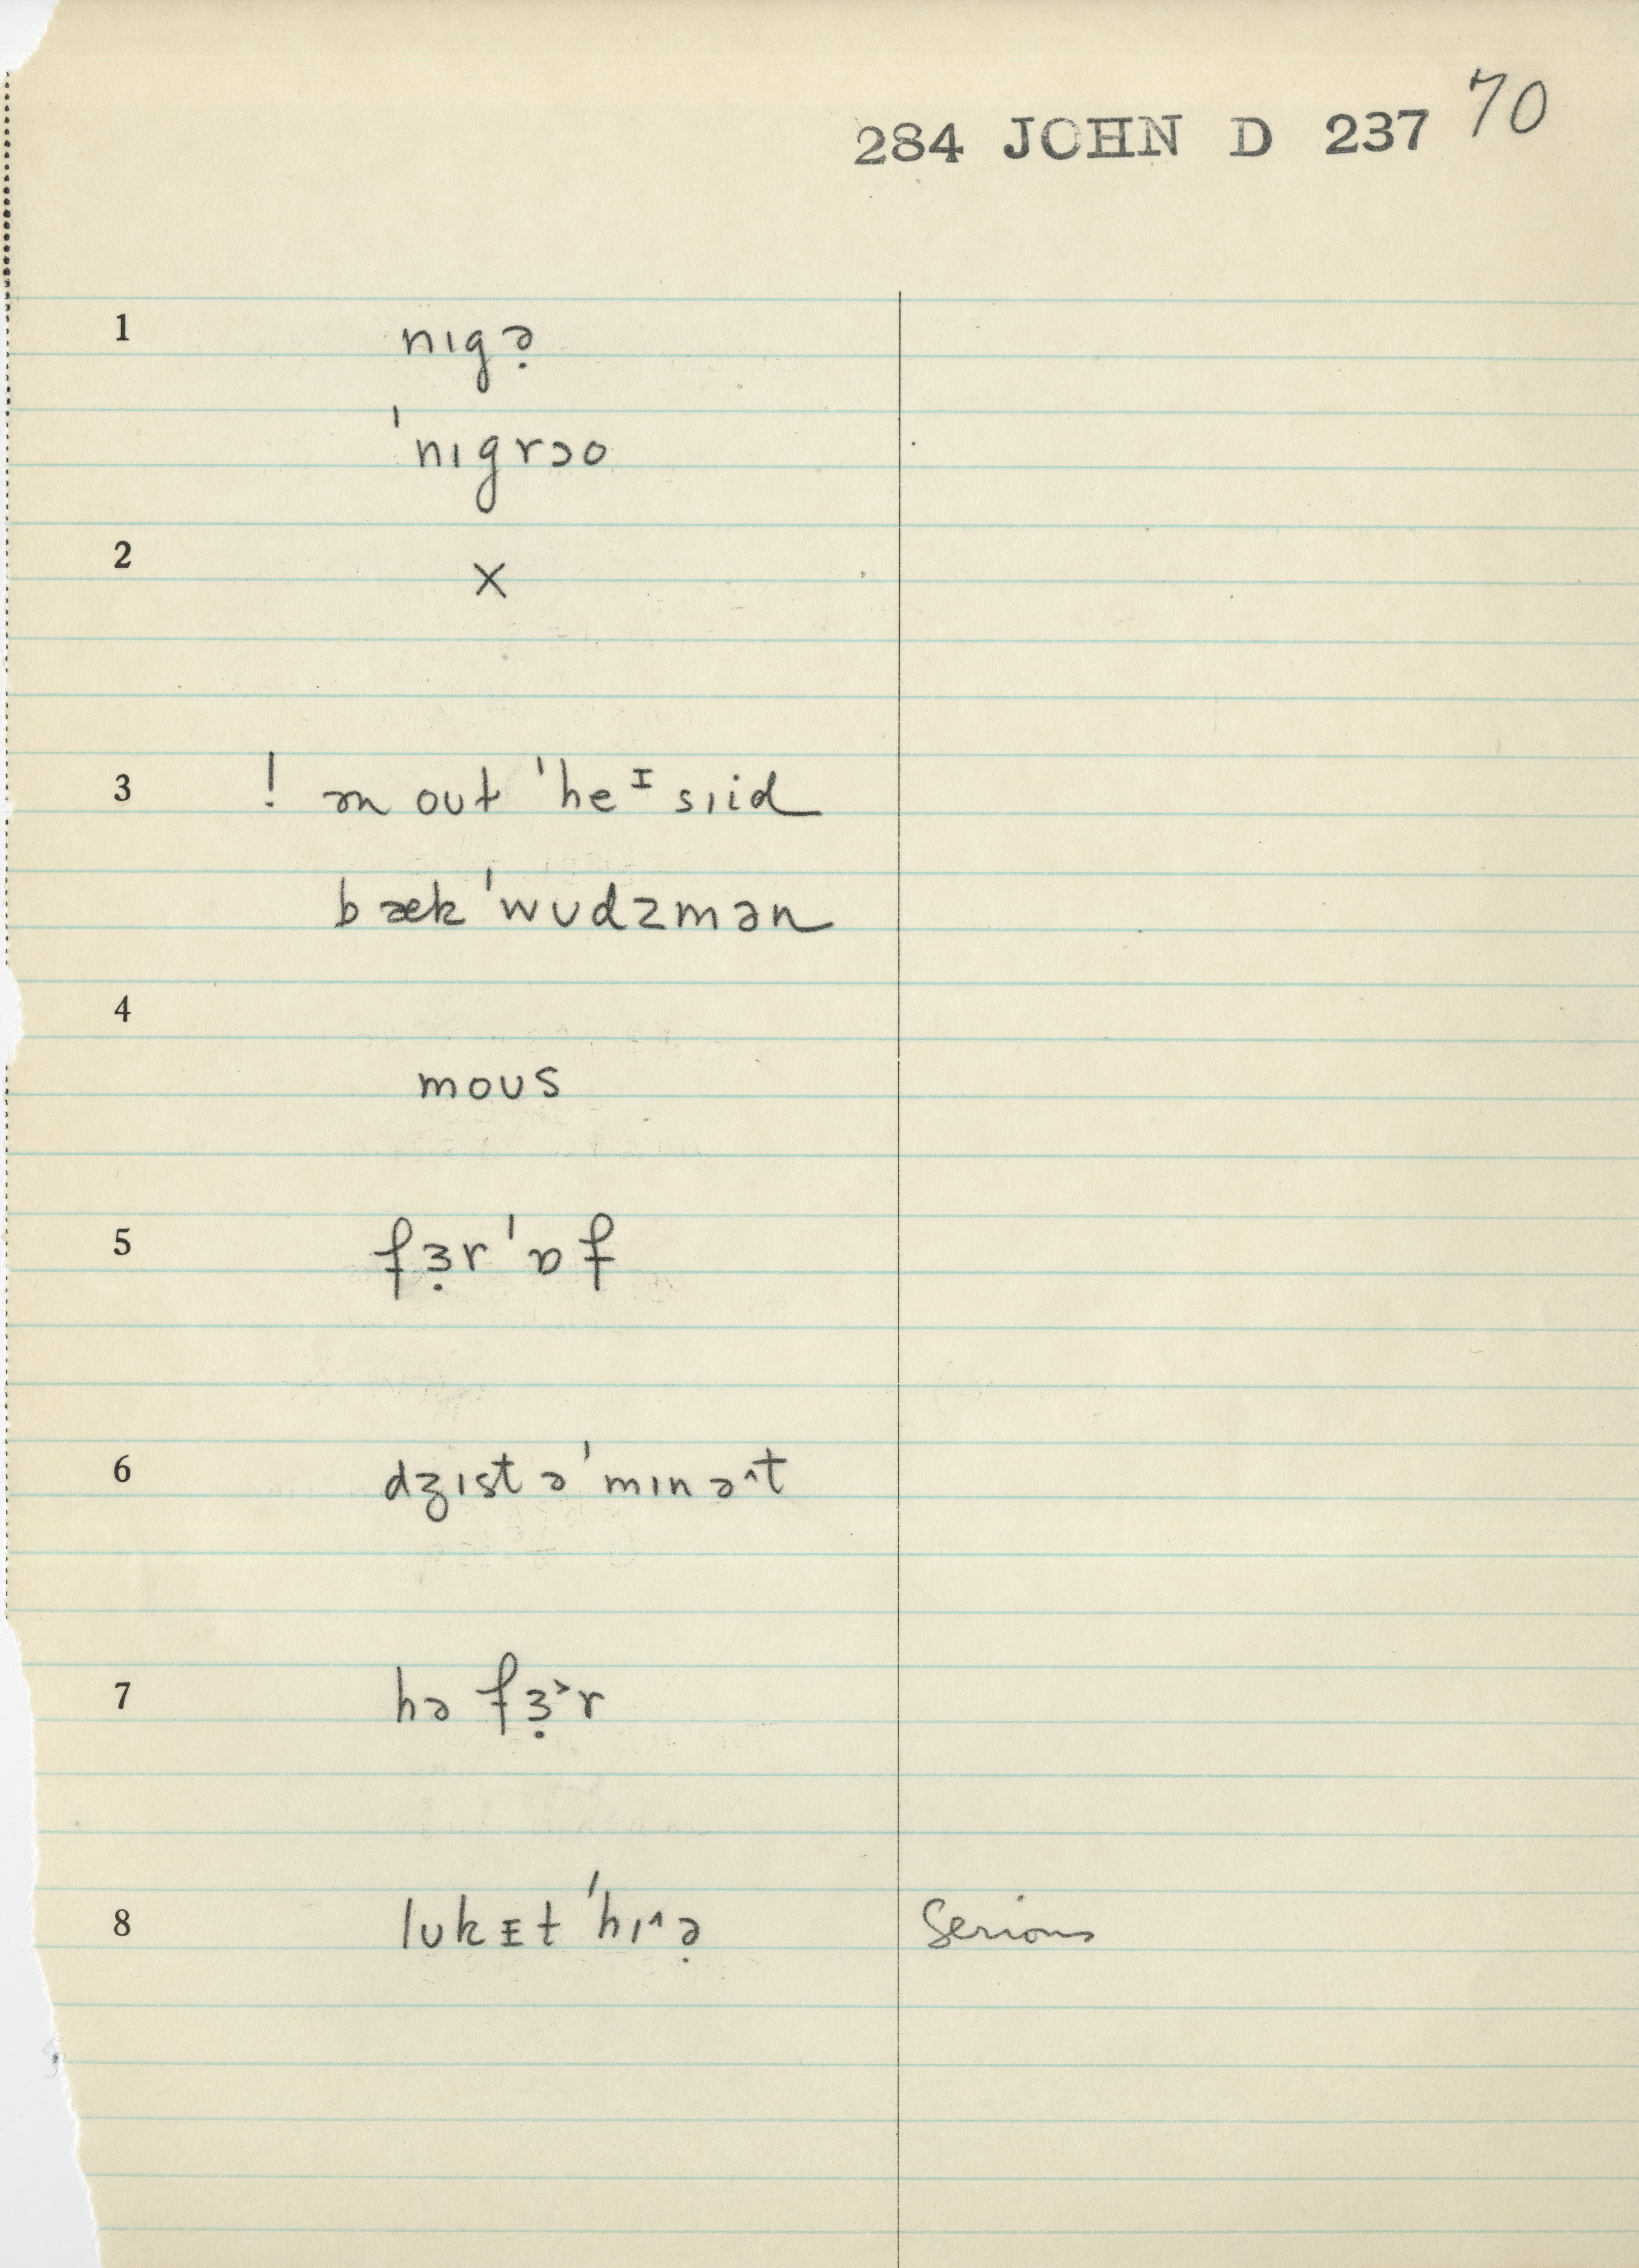 284 JOHN D 237 70
1 nɪgə̣
ˈnɪgrɔo
2 ×
3 ! ən out ˈheᶦsɪid
bækˈwʊdzmən
4
moʊs
5 fɜ̣rˈɒf
6 dʒɪst əˈmɪnə^t
7 hə fɜ̣˃r
8 lʊkᴇt ˈhɪ^ə̣ Serious